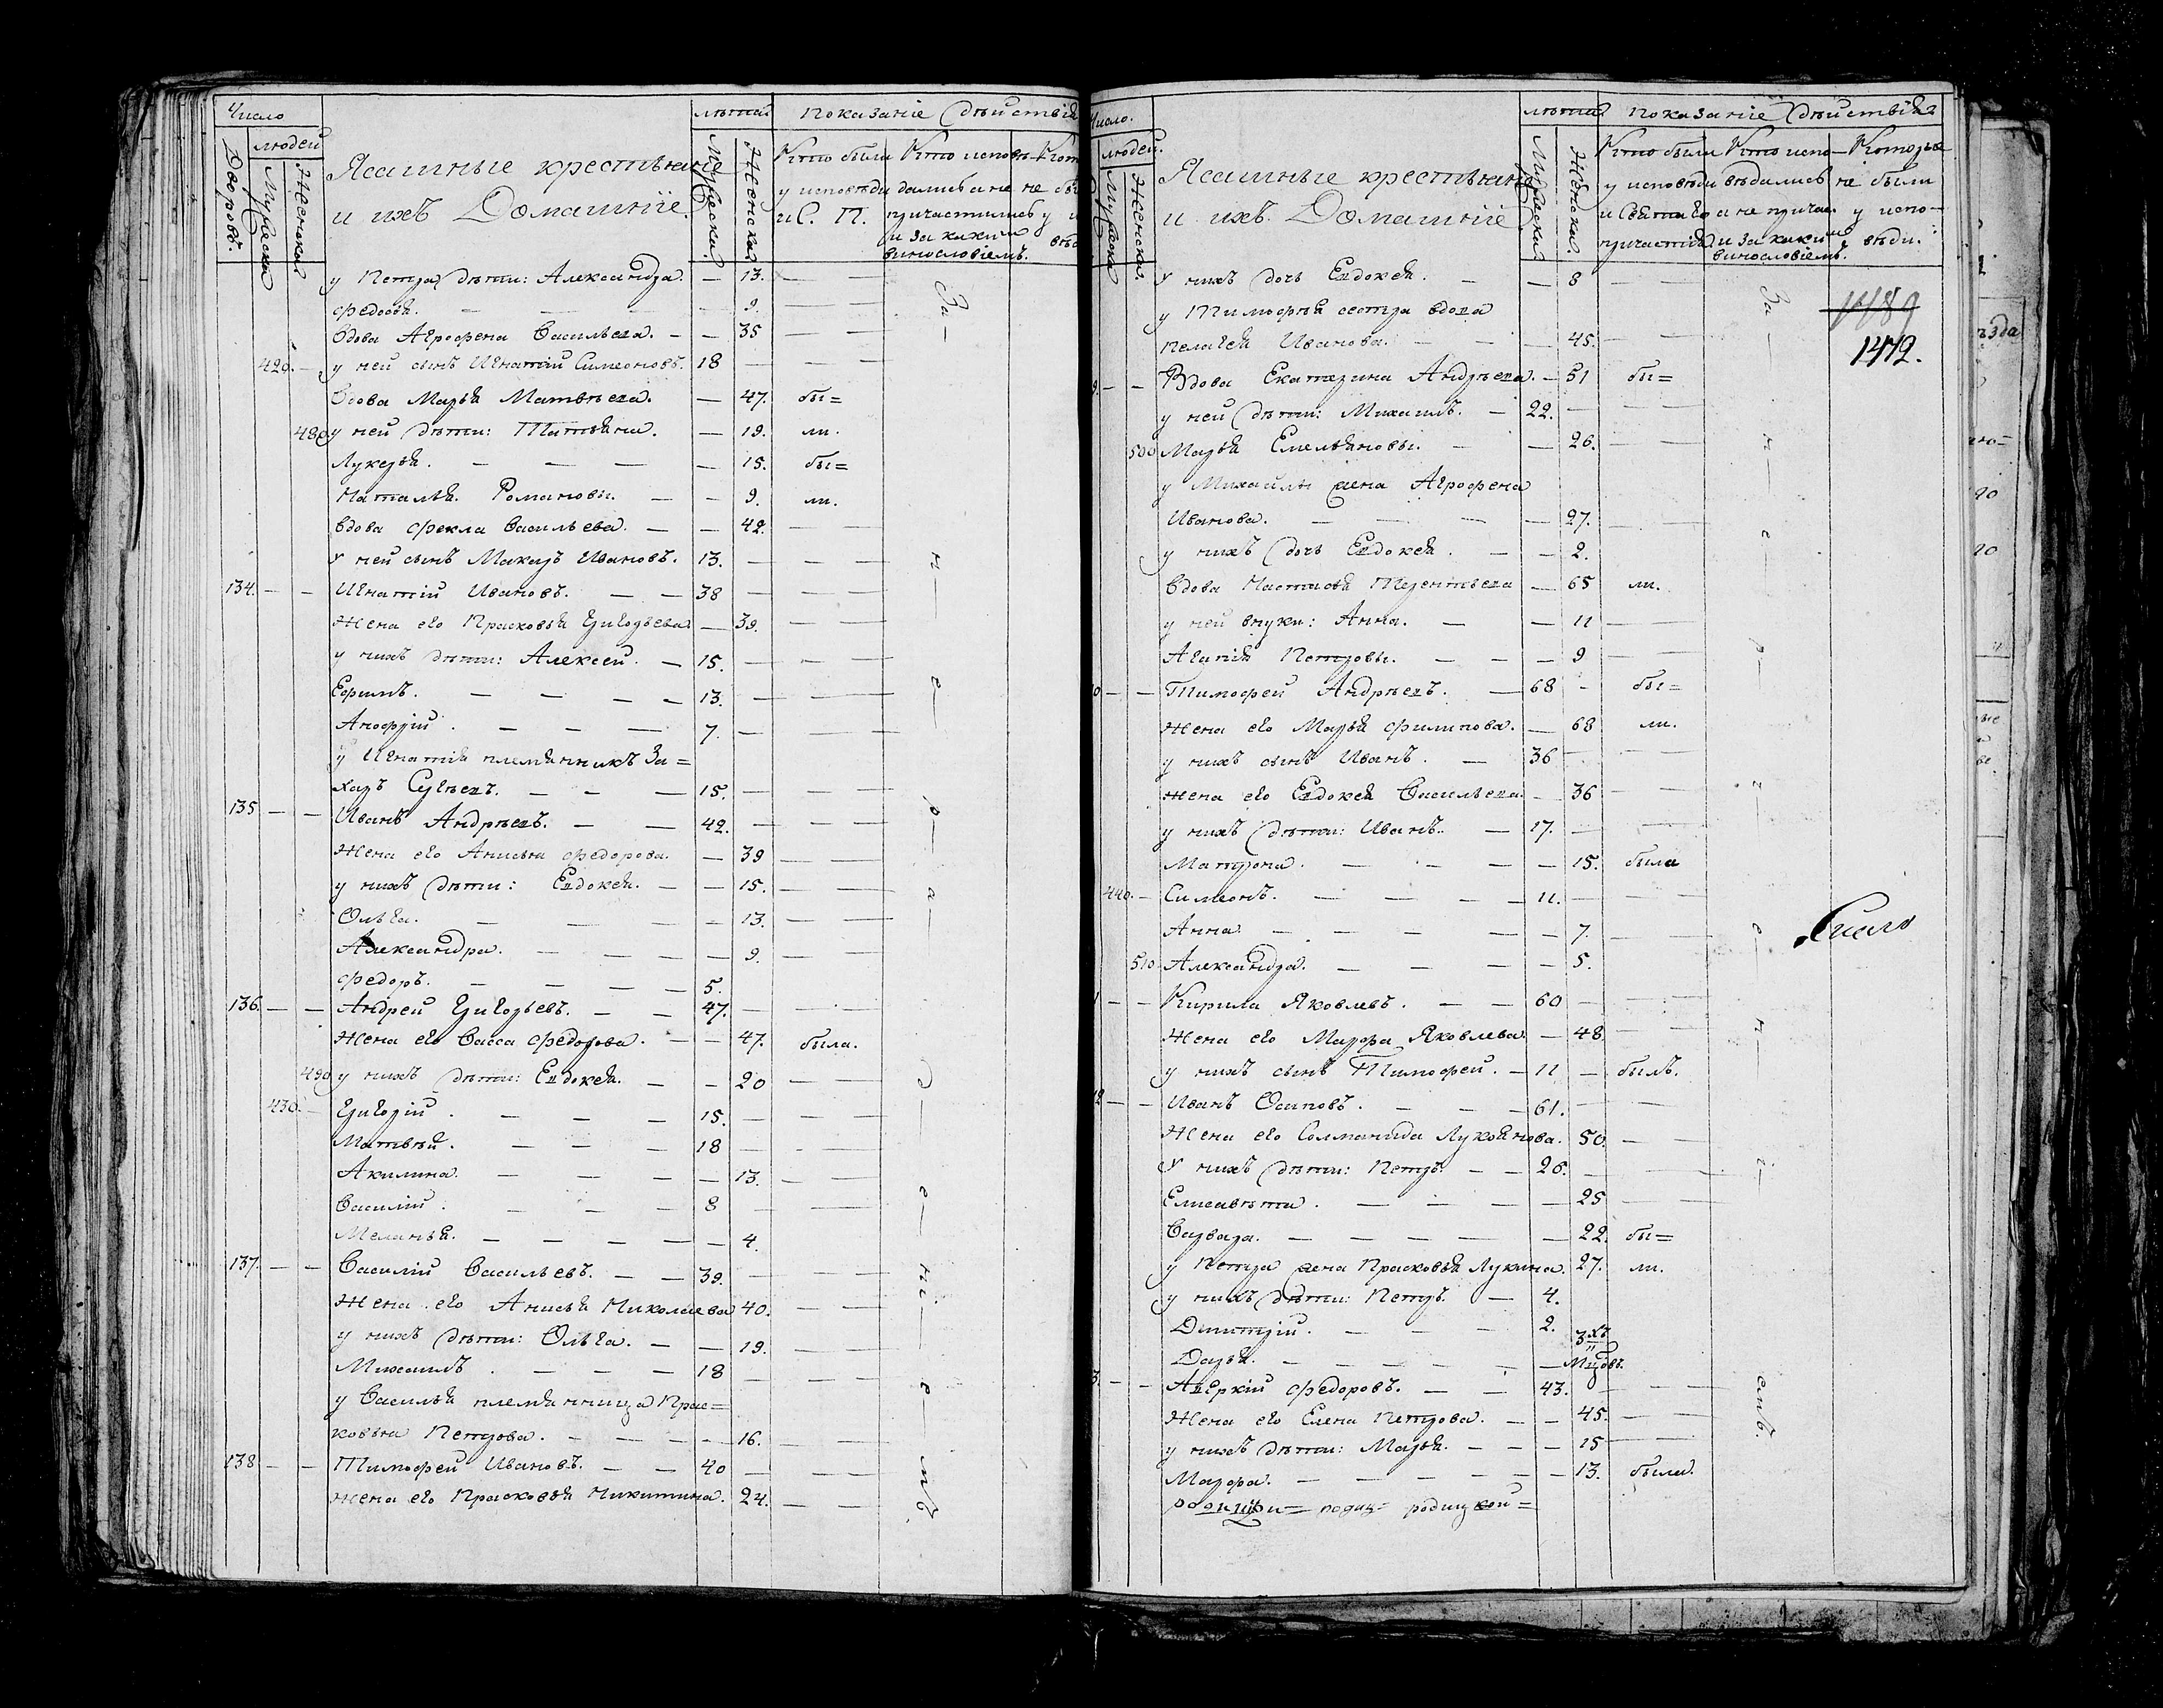 Число
людей
Дворовъ.
Мужеска
Женска
Ясашные крестьяне
и ихъ Домашніе.
лѣта
Мужеска.
Женска.
показаніе дѣйствія
Кто были
у исповѣди
и С. П.
Кто исповѣ-
дались а не
причастились
и за какимъ
винословіемъ.
не
у Петра дѣти: Александра. — 13. — —
Федосья. — — — 9. — —
Вдова Агрофена Васильева. — — 35 — —
429. — у ней сынъ Игнатій Симеоновъ. 18 — — —
Вдова Марья Матвѣева. — 47. бы=
480 у ней дѣти: Татьяна. — 19. ли.
Лукерья. — — — — 15. бы=
Наталья Романовы. — — 9. ли.
Вдова Фекла Васильева. — — 42. — —
У ней сынъ Макаръ Ивановъ. 13. — — —
134. — — Игнатій Ивановъ. — — 38 — — —
Жена его Прасковья Григорьева — 39. — —
у нихъ дѣти: Алексей. — 15. — — —
Ефимъ. — — — 13. — — —
Анофрій. — — — 7. — — —
у Игнатія племянникъ За=
харъ Сергѣевъ. — — — 15. — — —
135 — — Иванъ Андрѣевъ. — — 42. — — —
Жена его Анисья Федорова. — 39 — —
у нихъ дѣти: Евдокея. — — 15. — —
Ольга. — — — — 13. — —
Александра. — — — — 9. — —
Федоръ. — — — — 5.
136. — — Андрей Григорьевъ. — — 47. — — —
Жена его Васса Федорова. — — 47. была.
490 у нихъ дѣти: Евдокея. — — 20 — —
430. — Григорій. — — — 15. — — —
Матвѣй. — — — 18 — — —
Акилина. — — — — 13. — —
Василій. — — — 8 — — —
Меланья. — — — — 4.
137. — — Василій Васильевъ. — — 39. — — —
Жена его Анисья Николаева 40. — —
у нихъ дѣти: Ольга. — — 19. — —
Михаилъ. — — — 18 — — —
у Василья племянница Прас=
ковья Петрова. — — — — 16. — —
138 — — Тимофей Ивановъ. — — 40 — — —
Жена его Прасковья Никитина. 24. — —
За — н — е — р — а — д — е — ні — е — мъ
Число.
людей.
Мужеска
Женска.
Ясашные крестьяне
и ихъ Домашніе
лѣта
Мужеска
Женска.
показаніе дѣйствія
Кто были
у исповѣди
и Святаго
причастія
Кто испо—
вѣдались
а не прича.
и за какимъ
винословіемъ.
Которые
не были
у испо—
вѣди.
У нихъ дочь Евдокея. — — 8 — —
1489
у Тимофея сестра вдова
Пелагея Иванова. — — — 45. — —
1472.
9. — — Вдова Екатерина Андрѣева. — 51 бы=
у ней дѣти: Михаилъ. — 22. — — —
500 Марья Емельяновы. — — 26. — —
у Михайлы жена Агрофена
Иванова. — — — — 27. — —
у нихъ дочь Евдокея. — — 2.
Вдова Настасья Терентьева — 65 ли.
у ней внуки: Анна. — — 11 — —
Агапія Петровы. — — — 9 — —
0 — — Тимофей Андрѣевъ. — 68 — бы=
Жена его Марья Филипова. — 68 ли.
у нихъ сынъ Иванъ. — 36 — — —
Жена его Евдокея Васильева. — 36 — —
у нихъ дѣти: Иванъ. — 17. — — —
Матрона. — — — — 15. была
440. — Симеонъ. — — — — 11. — — —
Анна. — — — — — 7. — —
510 Александра. — — — — 5.
1 — — Кирила Яковлевъ. — — 60 — — —
Жена его Марфа Яковлева. — 48. — —
у нихъ сынъ Тимофей. — 11 — былъ.
12 — — Иванъ Осиповъ. — — — 61. — — —
Жена его Соломанида Лукоянова. 50. — —
У нихъ дѣти: Петръ. — — 26. — — —
Елисавѣта. — — — — 25 — —
Варвара. — — — — — 22. бы=
у Петра жена Прасковья Лукина. 27. ли.
у нихъ дѣти: Петръ. — 4.
Дмитрій. — — — 2.
Дарья. — — — — — — 3хъ мцовъ.
3. — — Аверкій Федоровъ. — — 43. — — —
Жена его Елена Петрова. — — 45. — —
у нихъ дѣти: Марья. — — — 15 — —
Марфа. — — — — — — 13. были.
За — н — е — р — а — д — е — н — і — емъ.
Число